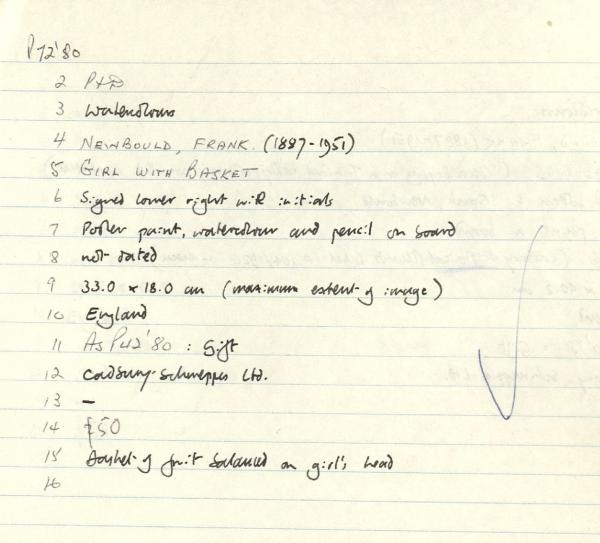 P72'80
2 P+D
3 Watercolours
4 NEWBOULD, FRANK. (1887-1951)
5 GIRL WITH BASKET
6 Signed lower right with initials
7 Poster paint, watercolour and pencil on board
8 not dated
9 33.0 x 18.0 cm (maximum extent of image)
10 England
11 As P42'80 : Gift
12 Cadbury-Schweppes Ltd.
13 –
14 £50
15 basket of fruit balanced on girl's head
16